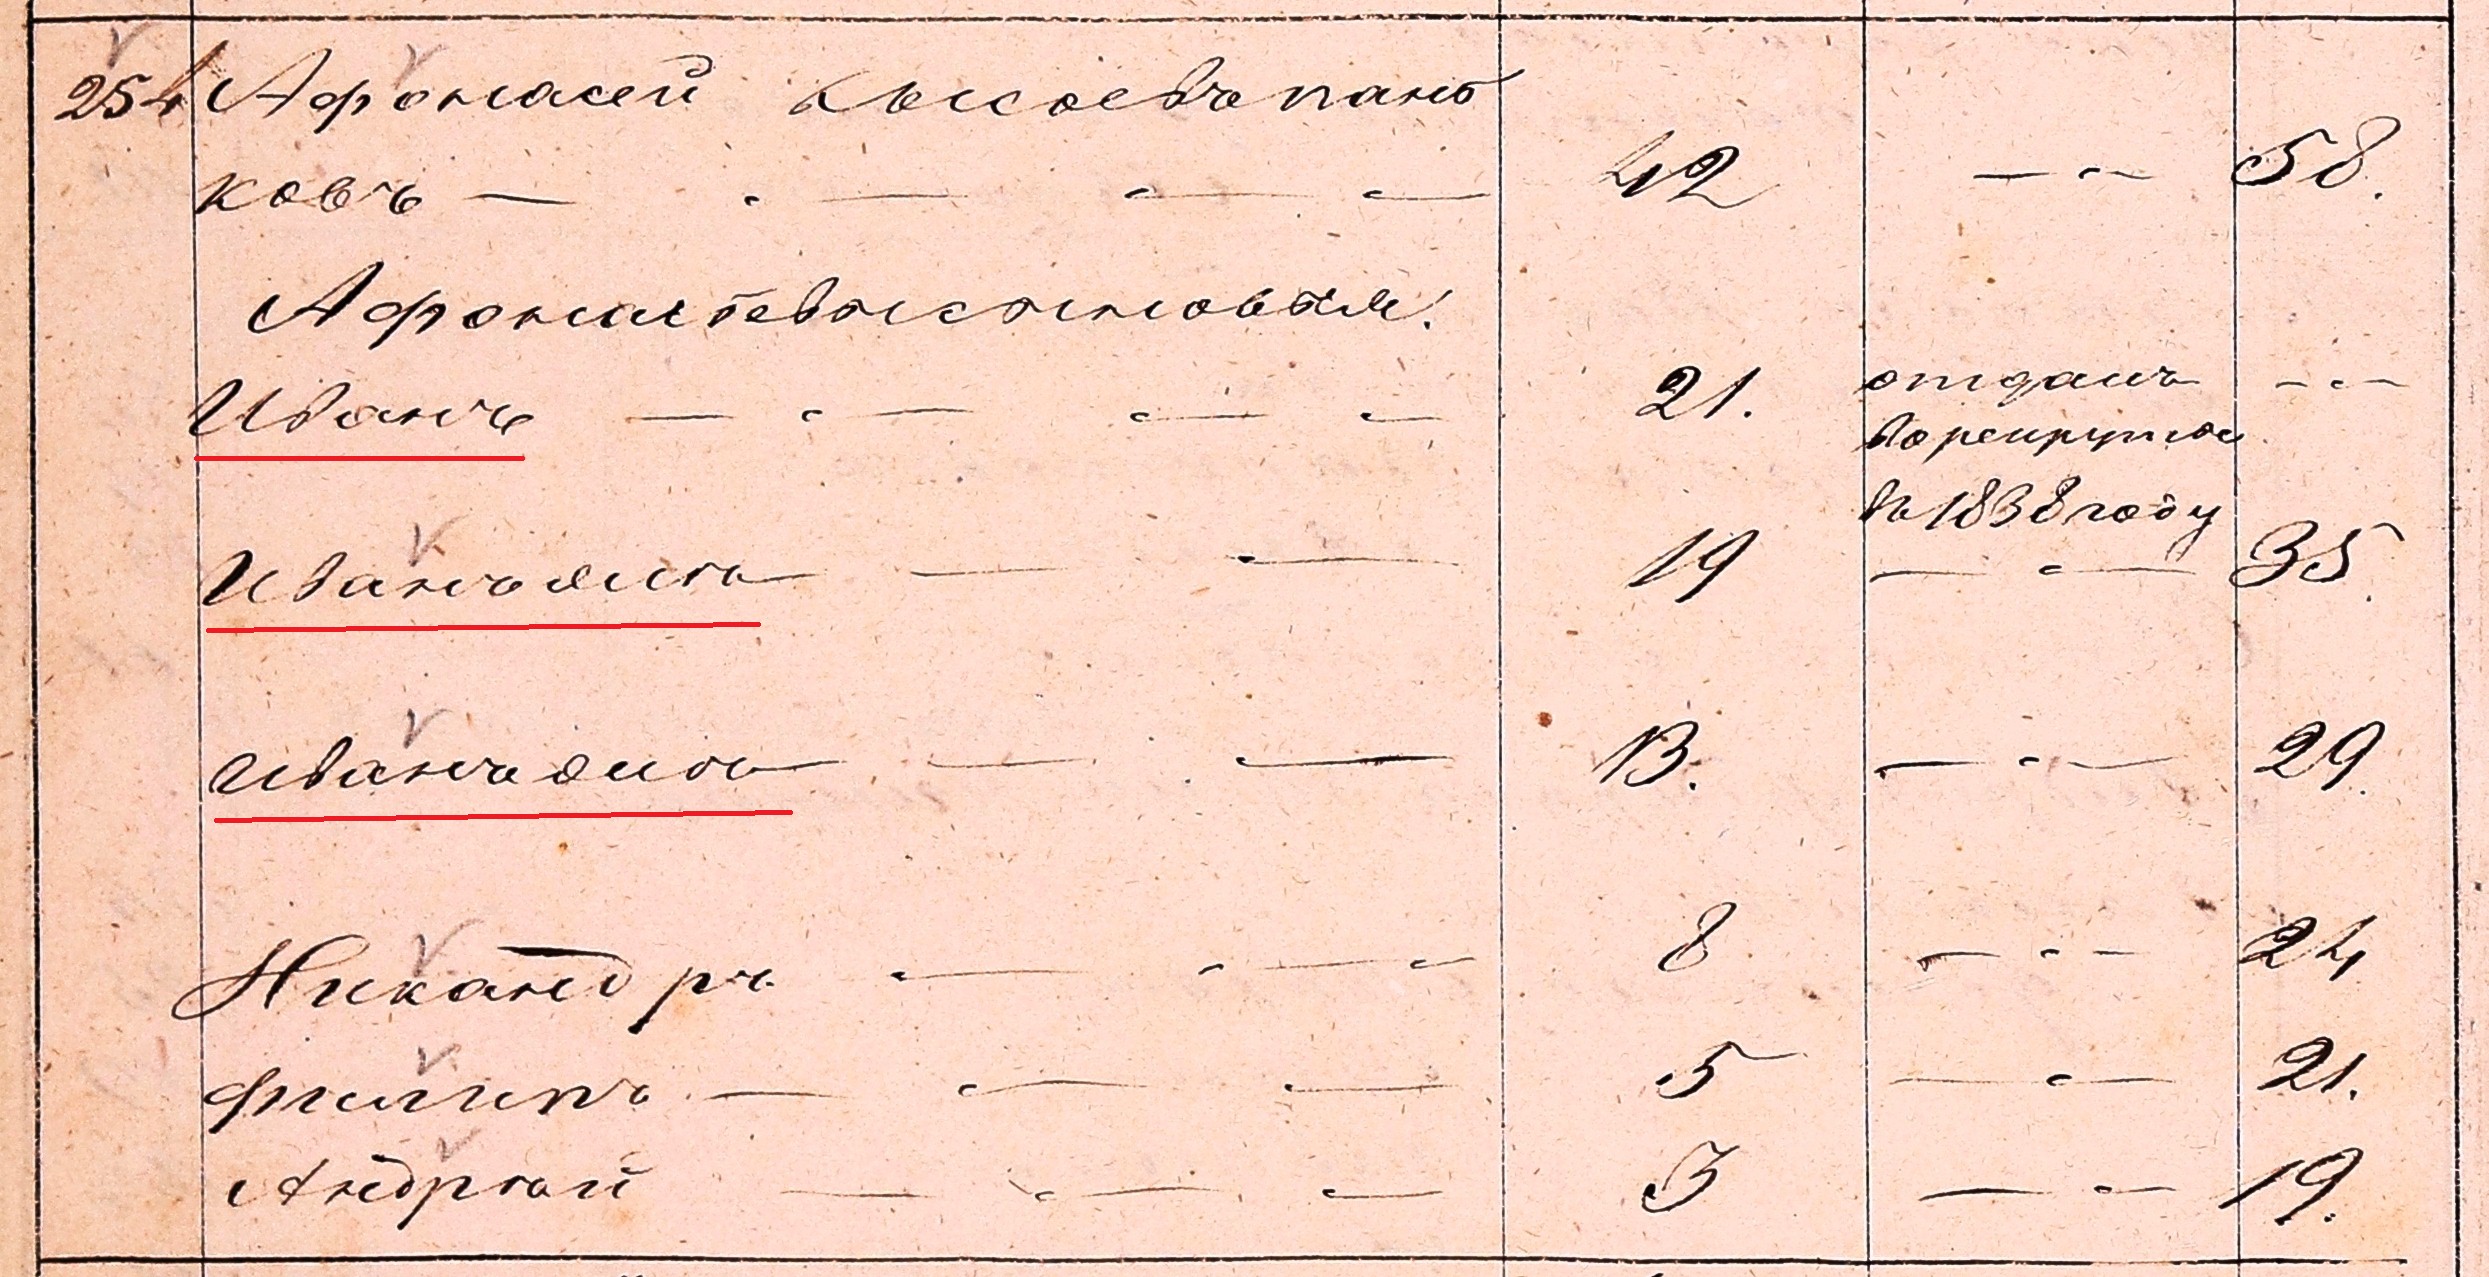 254 Афонасей Кысоевъ пань
ковъ — 42 — 58.
Афонасьевы сыновья:
Иванъ — 21. отданъ — —
в рекруты
въ 1838 году
Иванъ 2й — 19 — 35.
Иванъ 3й — 13. — 29.
Никандръ — 8 — 24
Филипъ — 5 — 21.
Андрей — 3 — 19.